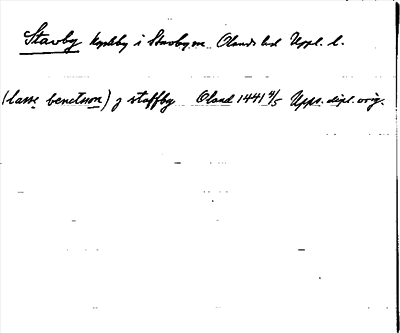 Stavby kyrkby i Stavby sn Olands hd Uppl. l.
(lasse benctsson) j staffby Oland 1441 9/5 Upps. dipl. orig.